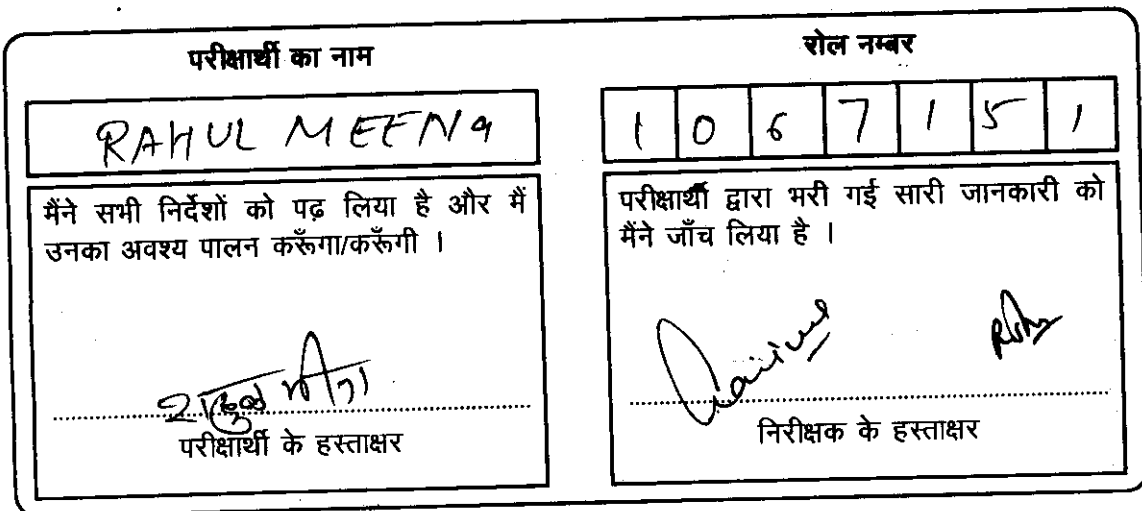 परीक्षार्थी का नाम
RAHUL MEENA
मैंने सभी निर्देशों को पढ़ लिया है और मैं
उनका अवश्य पालन करूँगा/करूँगी ।
राहुल मीना
परीक्षार्थी के हस्ताक्षर
रोल नम्बर
1 0 6 7 1 5 1
परीक्षार्थी द्वारा भरी गई सारी जानकारी को
मैंने जाँच लिया है ।
निरीक्षक के हस्ताक्षर